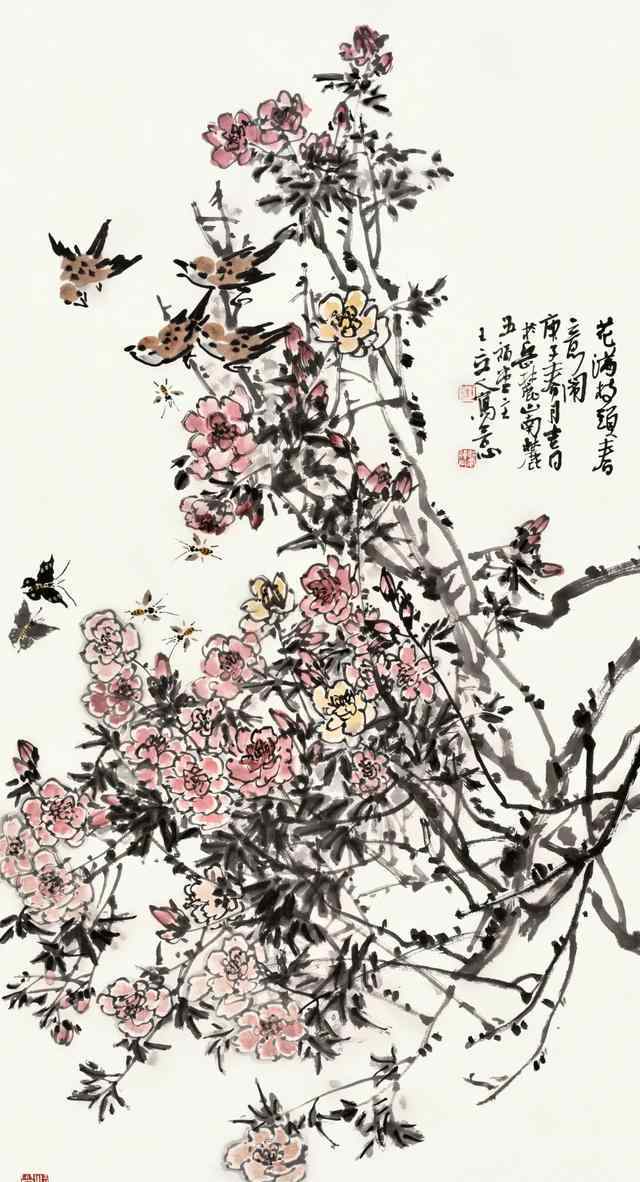 花满枝头春
意闹
庚子春月吉日
于岳麓山南麓
五福堂主
王立人写意